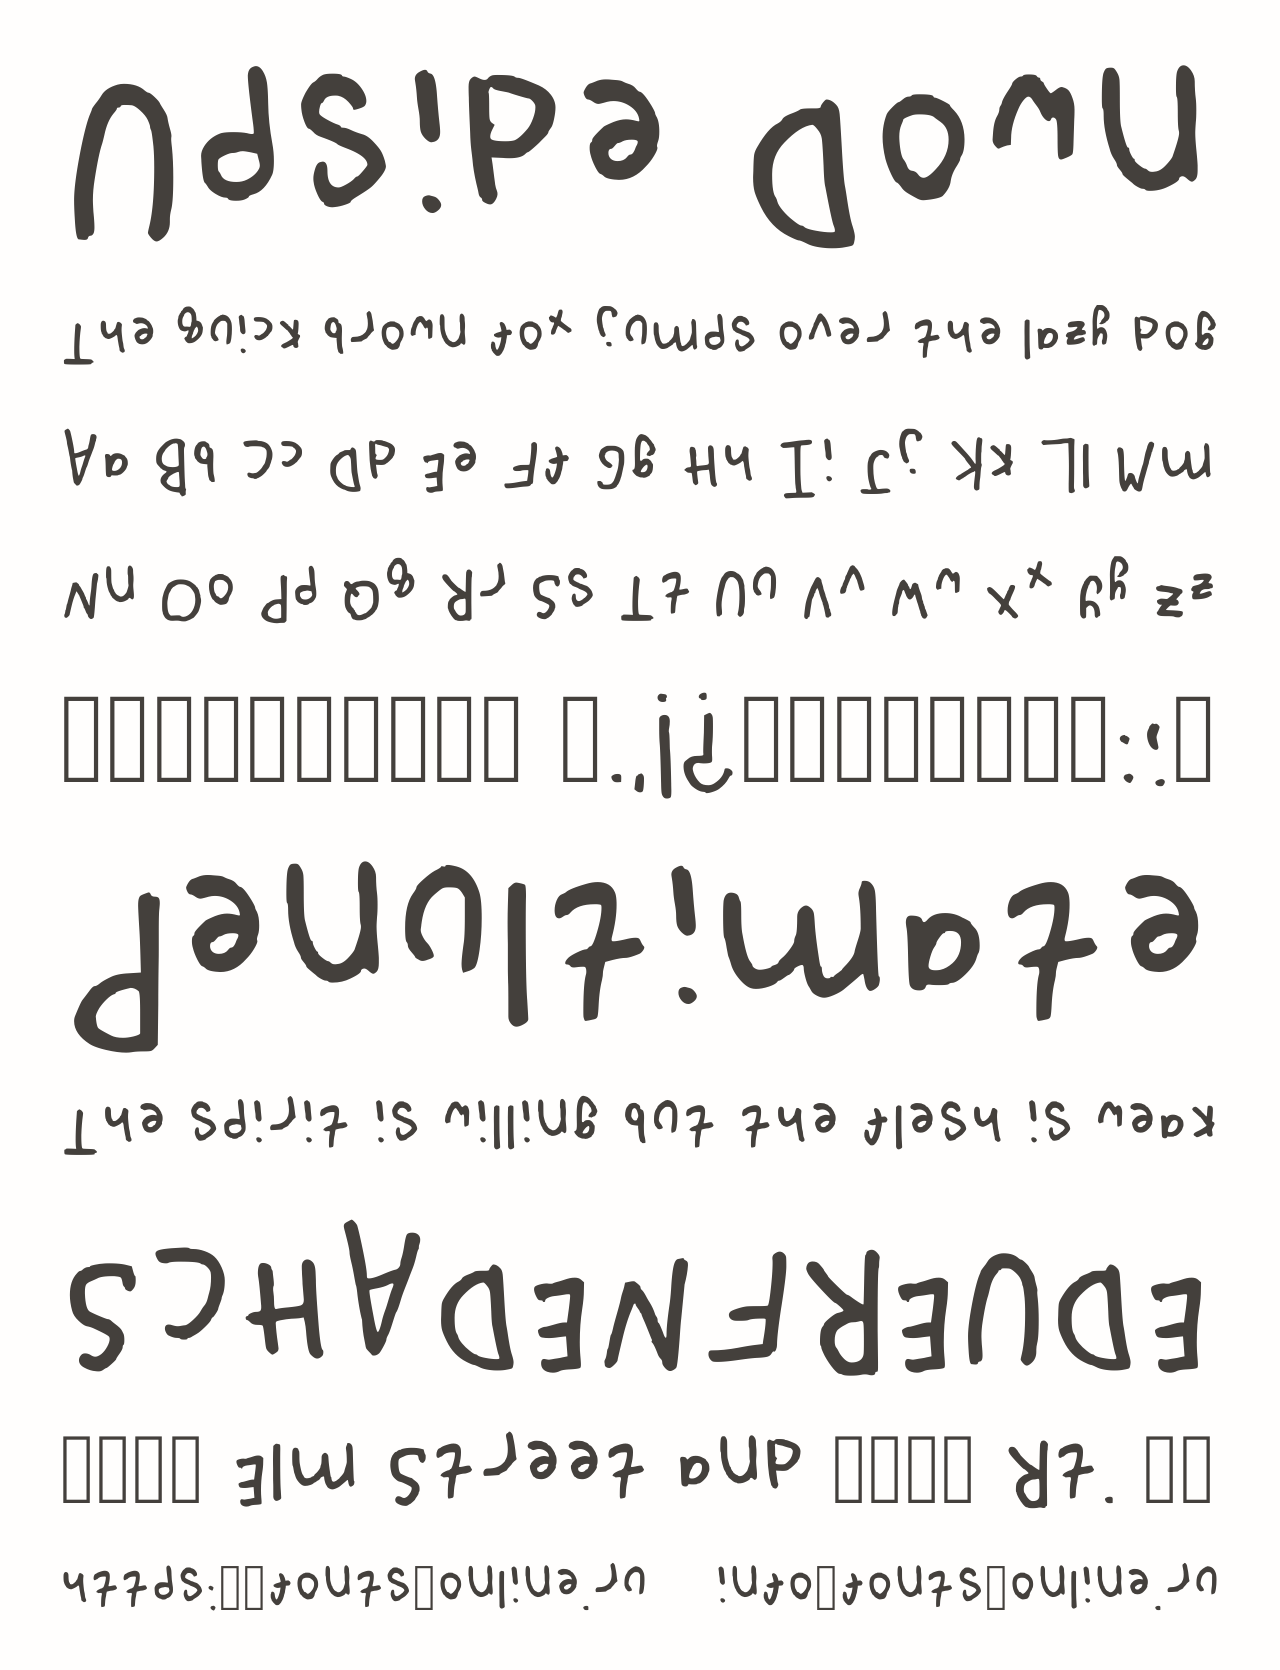 Upside Down
The quick brown fox jumps over the lazy dog
Aa Bb Cc Dd Ee Ff Gg Hh Ii Jj Kk Ll Mm
Nn Oo Pp Qq Rr Ss Tt Uu Vv Ww Xx Yy Zz
□□□□□□□□□□ □.,!?□□□□□□□□:;□
Penultimate
The spirit is willing but the flesh is weak
SCHADENFREUDE
□□□□ Elm Street and □□□□ Rt. □□
https:□□fonts□online.ru info□fonts□online.ru